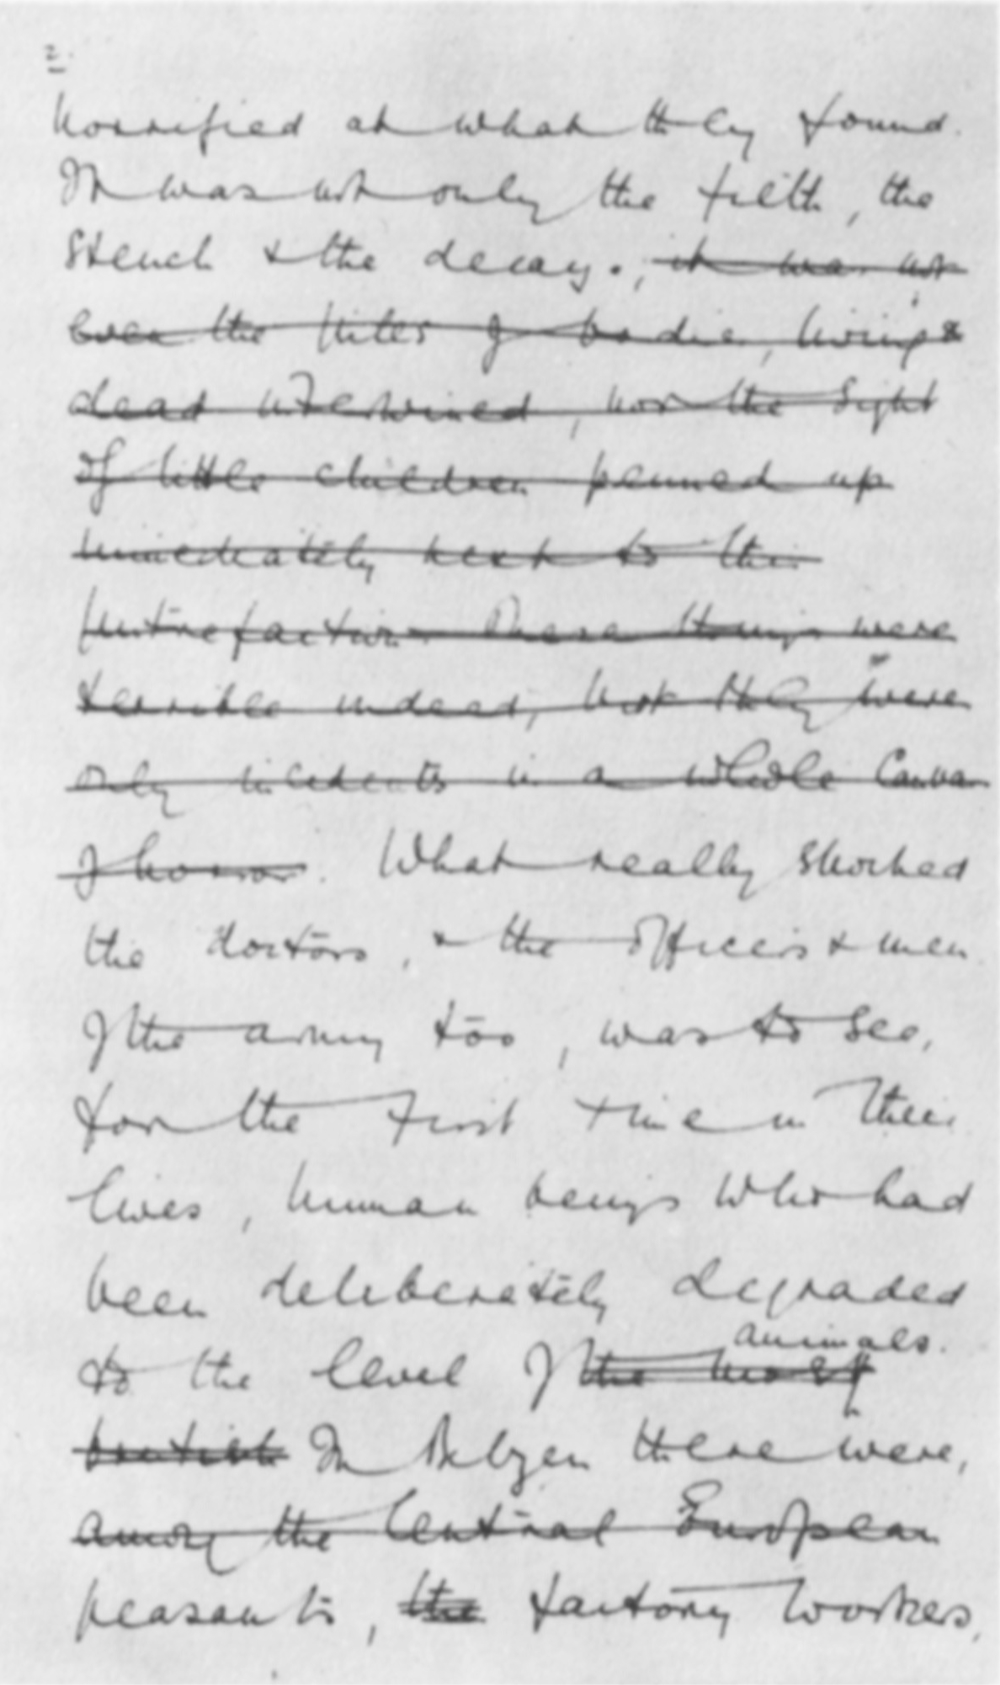 2.
horrified at what they found.
It was not only the filth, the
stench & the decay., it was not
even the piles of bodies, living &
dead intertwined, nor the sight
of little children penned up
immediately next to this
putrefaction. These things were
terrible indeed, but they were
only incidents in a whole canvas
of horror. What really shocked
the doctors, & the officers & men
of the army too, was to see,
for the first time in their
lives, human beings who had
been deliberately degraded
animals.
to the level of the most
brutish In Belgen there were,
among the Central European
peasants, the factory workers,